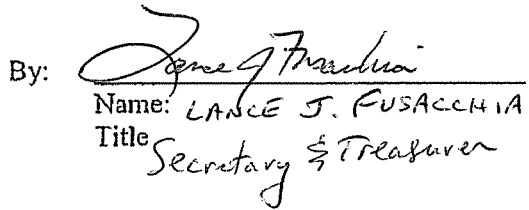 By: Lance J Fusacchia
Name: LANCE J. FUSACCHIA
Title Secretary & Treasurer